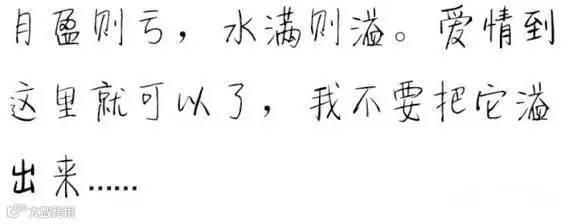 月盈则亏，水满则溢。爱情到
这里就可以了，我不要把它溢
出来……
大数跨境